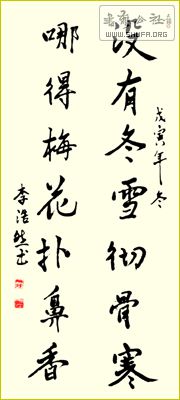 没有冬雪彻骨寒
戊寅年冬
哪得梅花扑鼻香
李浩然书
书法公社
WWW.SHUFA.ORG